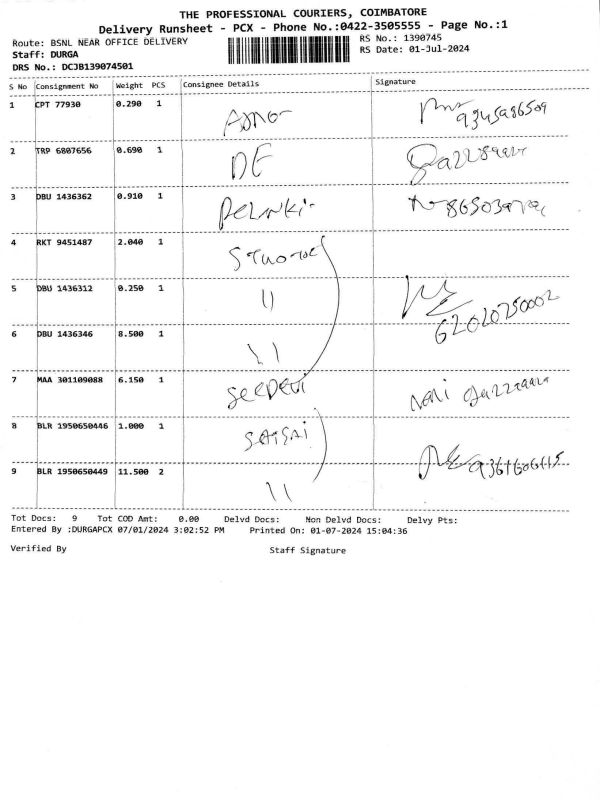 THE PROFESSIONAL COURIERS, COIMBATORE
Delivery Runsheet - PCX - Phone No.:0422-3505555 - Page No.:1
Route: BSNL NEAR OFFICE DELIVERY
RS No.: 1390745
Staff: DURGA
RS Date: 01-Jul-2024
DRS No.: DCJB139074501
S No Consignment No Weight PCS Consignee Details Signature
1 CPT 77930 0.290 1
2 TRP 6807656 0.690 1 DE
3 DBU 1436362 0.910 1
4 RKT 9451487 2.040 1
5 DBU 1436312 0.250 1 11
6 DBU 1436346 8.500 1 11
7 MAA 301109088 6.150 1 SEEDEVI
8 BLR 1950650446 1.000 1 SAISAI
9 BLR 1950650449 11.500 2 11
Tot Docs: 9 Tot COD Amt: 0.00 Delvd Docs: Non Delvd Docs: Delvy Pts:
Entered By :DURGAPCX 07/01/2024 3:02:52 PM Printed On: 01-07-2024 15:04:36
Verified By Staff Signature